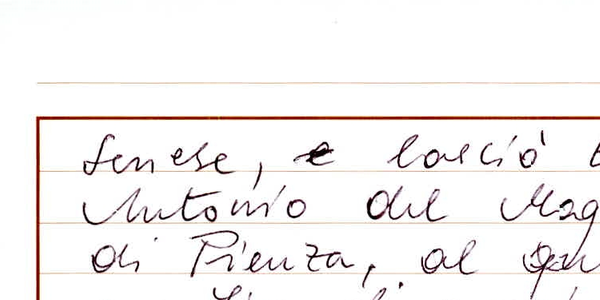 senese, e lasciò
Antonio del Mag
di Pienza, al qu